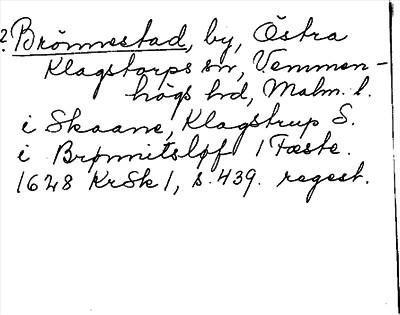 2. Brönnestad, by, Östra
Klagstorps sn, Vemmen-
högs hd, Malm. l.
i Skaane, Klagstrup S.
i Brønnitsløf 1 Fæste.
1628 KrSk 1, s. 439. regest.